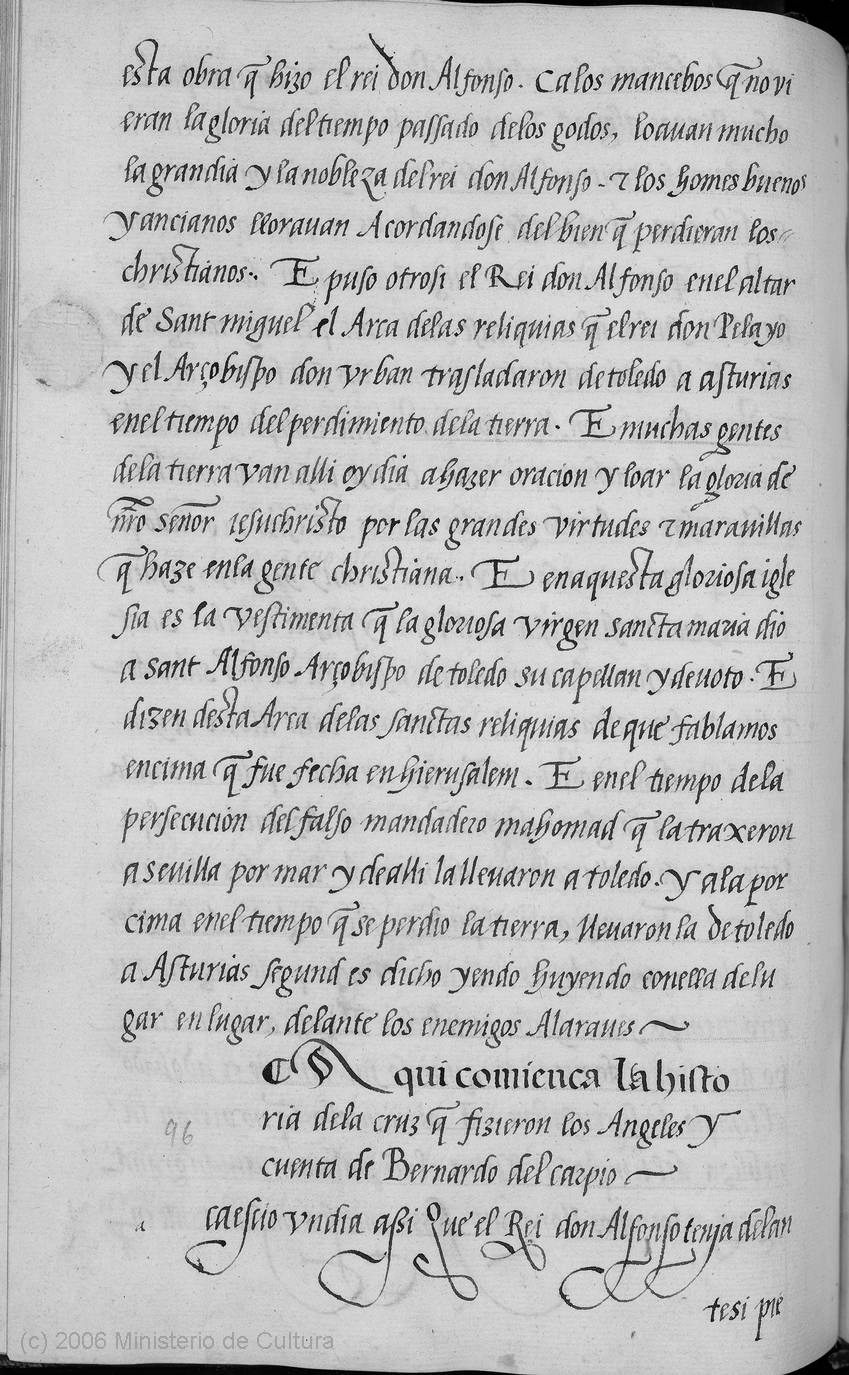 esta obra q̃ hizo el rei don Alfonso. Ca los mancebos q̃ no vi
eran la gloria del tiempo passado delos godos, loauan mucho
la grandia y la nobleza del rei don Alfonso. τ los homes buenos
y ancianos llorauan Acordandose del bien q̃ perdieran los
christianos. E puso otrosi el Rei don Alfonso enel altar
de Sant miguel el Arca delas reliquias q̃ el rei don Pelayo
y el Arçobispo don vrban trasladaron de toledo a asturias
enel tiempo del perdimiento dela tierra. E muchas gentes
dela tierra van alli oy dia a hazer oracion y loar la gloria de
nr̃o señor iesuchristo por las grandes virtudes τ marauillas
q̃ haze enla gente christiana. E en aquesta gloriosa igle
sia es la vestimenta q̃ la gloriosa virgen sancta maria dio
a sant Alfonso Arçobispo de toledo su capellan y deuoto. E
dizen desta Arca delas sanctas reliquias de que fablamos
encima q̃ fue fecha en hierusalem. E enel tiempo dela
persecucion del falso mandadero mahomad q̃ la traxeron
a seuilla por mar y de alli la lleuaron a toledo. Y ala por
cima enel tiempo q̃ se perdio la tierra, lleuaronla de toledo
a Asturias segund es dicho yendo huyendo conella de lu
gar en lugar, delante los enemigos Alaraues
Aqui comienca la histo
ria dela cruz q̃ fizieron los Angeles y
96
cuenta de Bernardo del carpio
a caescio vn dia assi que el Rei don Alfonso tenia delan
tesi pie
(c) 2006 Ministerio de Cultura